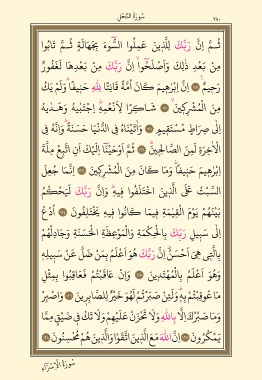 سُورَةُ النَّحْلِ
٢٨٠
ثُمَّ اِنَّ رَبَّكَ لِلَّذٖينَ عَمِلُوا السُّٓوءَ بِجَهَالَةٍ ثُمَّ تَابُوا
مِنْ بَعْدِ ذٰلِكَ وَاَصْلَحُٓوا اِنَّ رَبَّكَ مِنْ بَعْدِهَا لَغَفُورٌ
رَحٖيمٌ ﴿١١٩﴾ اِنَّ اِبْرٰهٖيمَ كَانَ اُمَّةً قَانِتًا لِلّٰهِ حَنٖيفًا وَلَمْ يَكُ
مِنَ الْمُشْرِكٖينَ ﴿١٢٠﴾ شَاكِرًا لِاَنْعُمِهٖ اِجْتَبٰيهُ وَهَدٰيهُ
اِلٰى صِرَاطٍ مُسْتَقٖيمٍ ﴿١٢١﴾ وَاٰتَيْنَاهُ فِى الدُّنْيَا حَسَنَةً وَاِنَّهُ فِى
الْاٰخِرَةِ لَمِنَ الصَّالِحٖينَ ﴿١٢٢﴾ ثُمَّ اَوْحَيْنَٓا اِلَيْكَ اَنِ اتَّبِعْ مِلَّةَ
اِبْرٰهٖيمَ حَنٖيفًا وَمَا كَانَ مِنَ الْمُشْرِكٖينَ ﴿١٢٣﴾ اِنَّمَا جُعِلَ
السَّبْتُ عَلَى الَّذٖينَ اخْتَلَفُوا فٖيهِ وَاِنَّ رَبَّكَ لَيَحْكُمُ
بَيْنَهُمْ يَوْمَ الْقِيٰمَةِ فٖيمَا كَانُوا فٖيهِ يَخْتَلِفُونَ ﴿١٢٤﴾ اُدْعُ
اِلٰى سَبٖيلِ رَبِّكَ بِالْحِكْمَةِ وَالْمَوْعِظَةِ الْحَسَنَةِ وَجَادِلْهُمْ
بِالَّتٖى هِىَ اَحْسَنُ اِنَّ رَبَّكَ هُوَ اَعْلَمُ بِمَنْ ضَلَّ عَنْ سَبٖيلِهٖ
وَهُوَ اَعْلَمُ بِالْمُهْتَدٖينَ ﴿١٢٥﴾ وَاِنْ عَاقَبْتُمْ فَعَاقِبُوا بِمِثْلِ
مَا عُوقِبْتُمْ بِهٖ وَلَئِنْ صَبَرْتُمْ لَهُوَ خَيْرٌ لِلصَّابِرٖينَ ﴿١٢٦﴾ وَاصْبِرْ
وَمَا صَبْرُكَ اِلَّا بِاللّٰهِ وَلَا تَحْزَنْ عَلَيْهِمْ وَلَا تَكُ فٖى ضَيْقٍ مِمَّا
يَمْكُرُونَ ﴿١٢٧﴾ اِنَّ اللّٰهَ مَعَ الَّذٖينَ اتَّقَوْا وَالَّذٖينَ هُمْ مُحْسِنُونَ ﴿١٢٨﴾
سُورَةُ الْاِسْرَاءِ